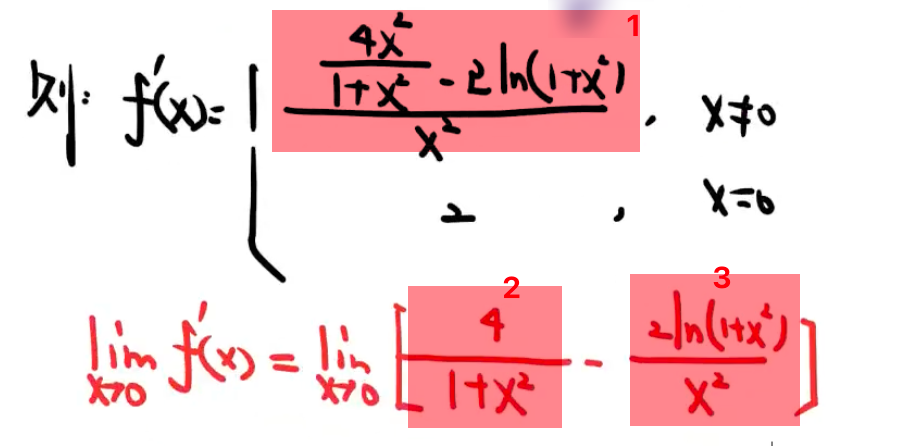 1
则: f'(x)= { (4x²/(1+x²) - 2ln(1+x²))/x² , x≠0
2 , x=0
2 3
lim x→0 f'(x) = lim x→0 [ 4/(1+x²) - 2ln(1+x²)/x² ]